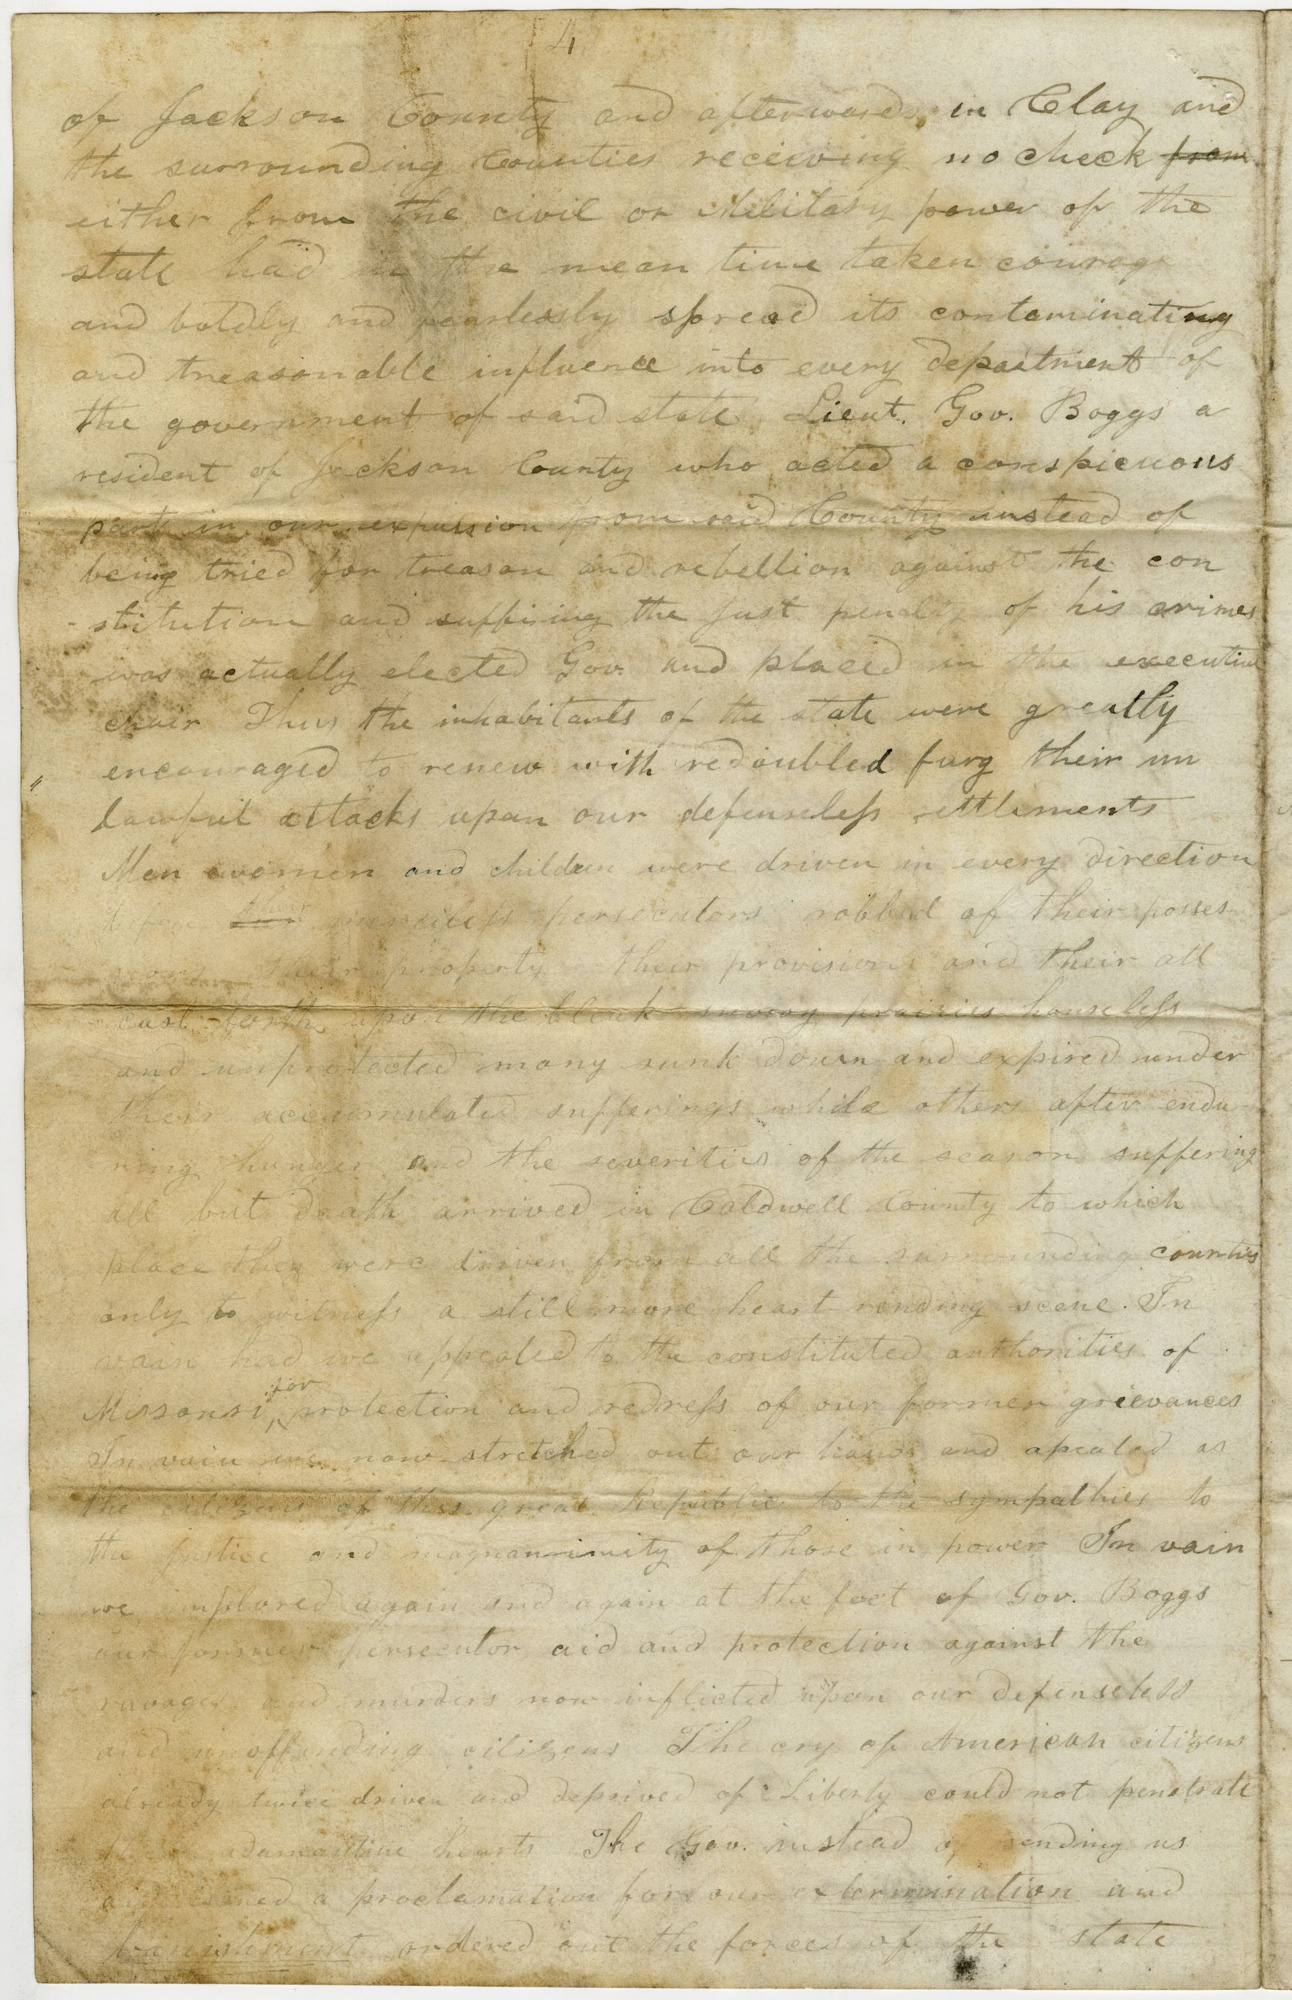 4
of Jackson County and afterwards in Clay and
the surrounding Counties receiving no check from
either from the civil or Military power of the
state had in the mean time taken courage
and boldly and fearlessly spread its contaminating
and treasonable influence into every department of
the government of said state Lieut. Gov. Boggs a
resident of Jackson County who acted a conspicuous
part in our expulsion from said County instead of
being tried for treason and rebellion against the con
-stitution and suffiring the just penalty of his crimes
was actually elected Gov. and placed in the executive
chair Thus the inhabitants of the state were greatly
encouraged to renew with redoubled fury their un
"lawful attacks upon our defenseless settlements
Men women and children were driven in every direction
before their merciless persecutors robbed of their posses
sions their property their provisions and their all
cast forth upon the bleak snowy prairies houseless
and unprotected many sunk down and expired under
their accumulated sufferings while others after endu
ring hunger and the severities of the season suffering
all but death arrived in Caldwell County to which
place they were driven from all the surrounding counties
only to witness a still more heart rending scene. In
vain had we appealed to the constituted authorities of
Missouri for protection and redress of our former grievances
In vain we now stretched out our hands and apealed as
the citizens of this great Republic to the sympathies to
the justice and magnanimity of those in power In vain
we implored again and again at the feet of Gov. Boggs
our former persecutor aid and protection against the
ravages and murders now inflicted upon our defenseless
and unoffending citizens The cry of American citizens
already twice driven and deprived of Liberty could not penetrate
adamantine hearts The Gov. instead of sending us
aid issued a proclamation for our extermination and
banishment ordered out the forces of the state